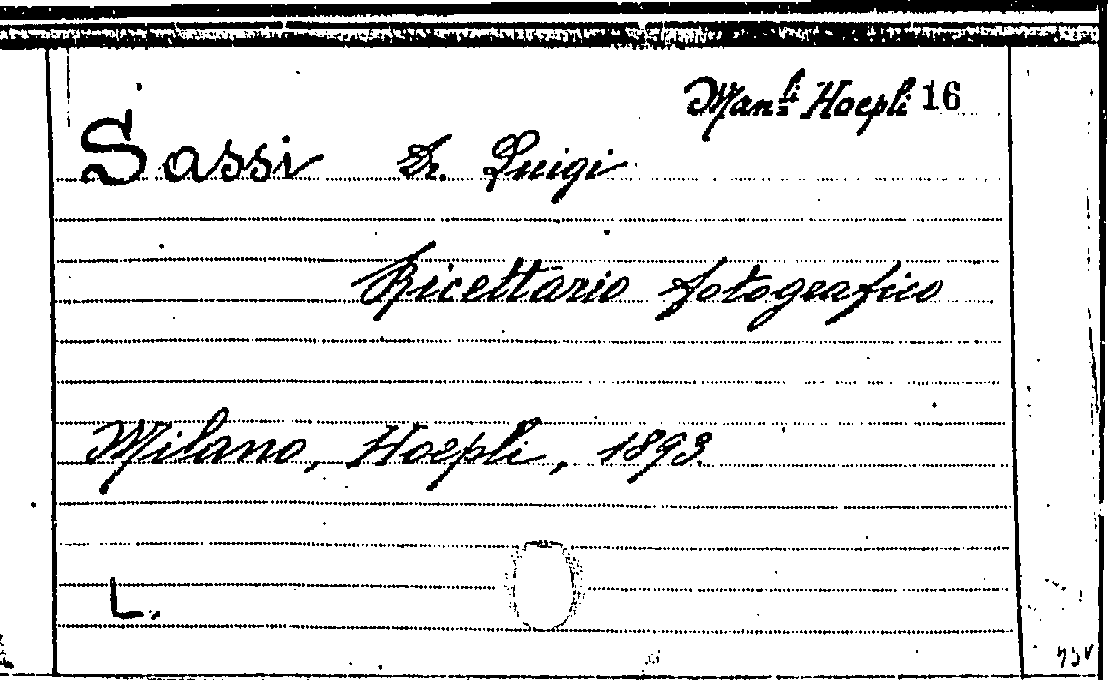 Man.li Hoepli 16
Sassi Dr. Luigi
Ricettario fotografico
Milano, Hoepli, 1893.
L.